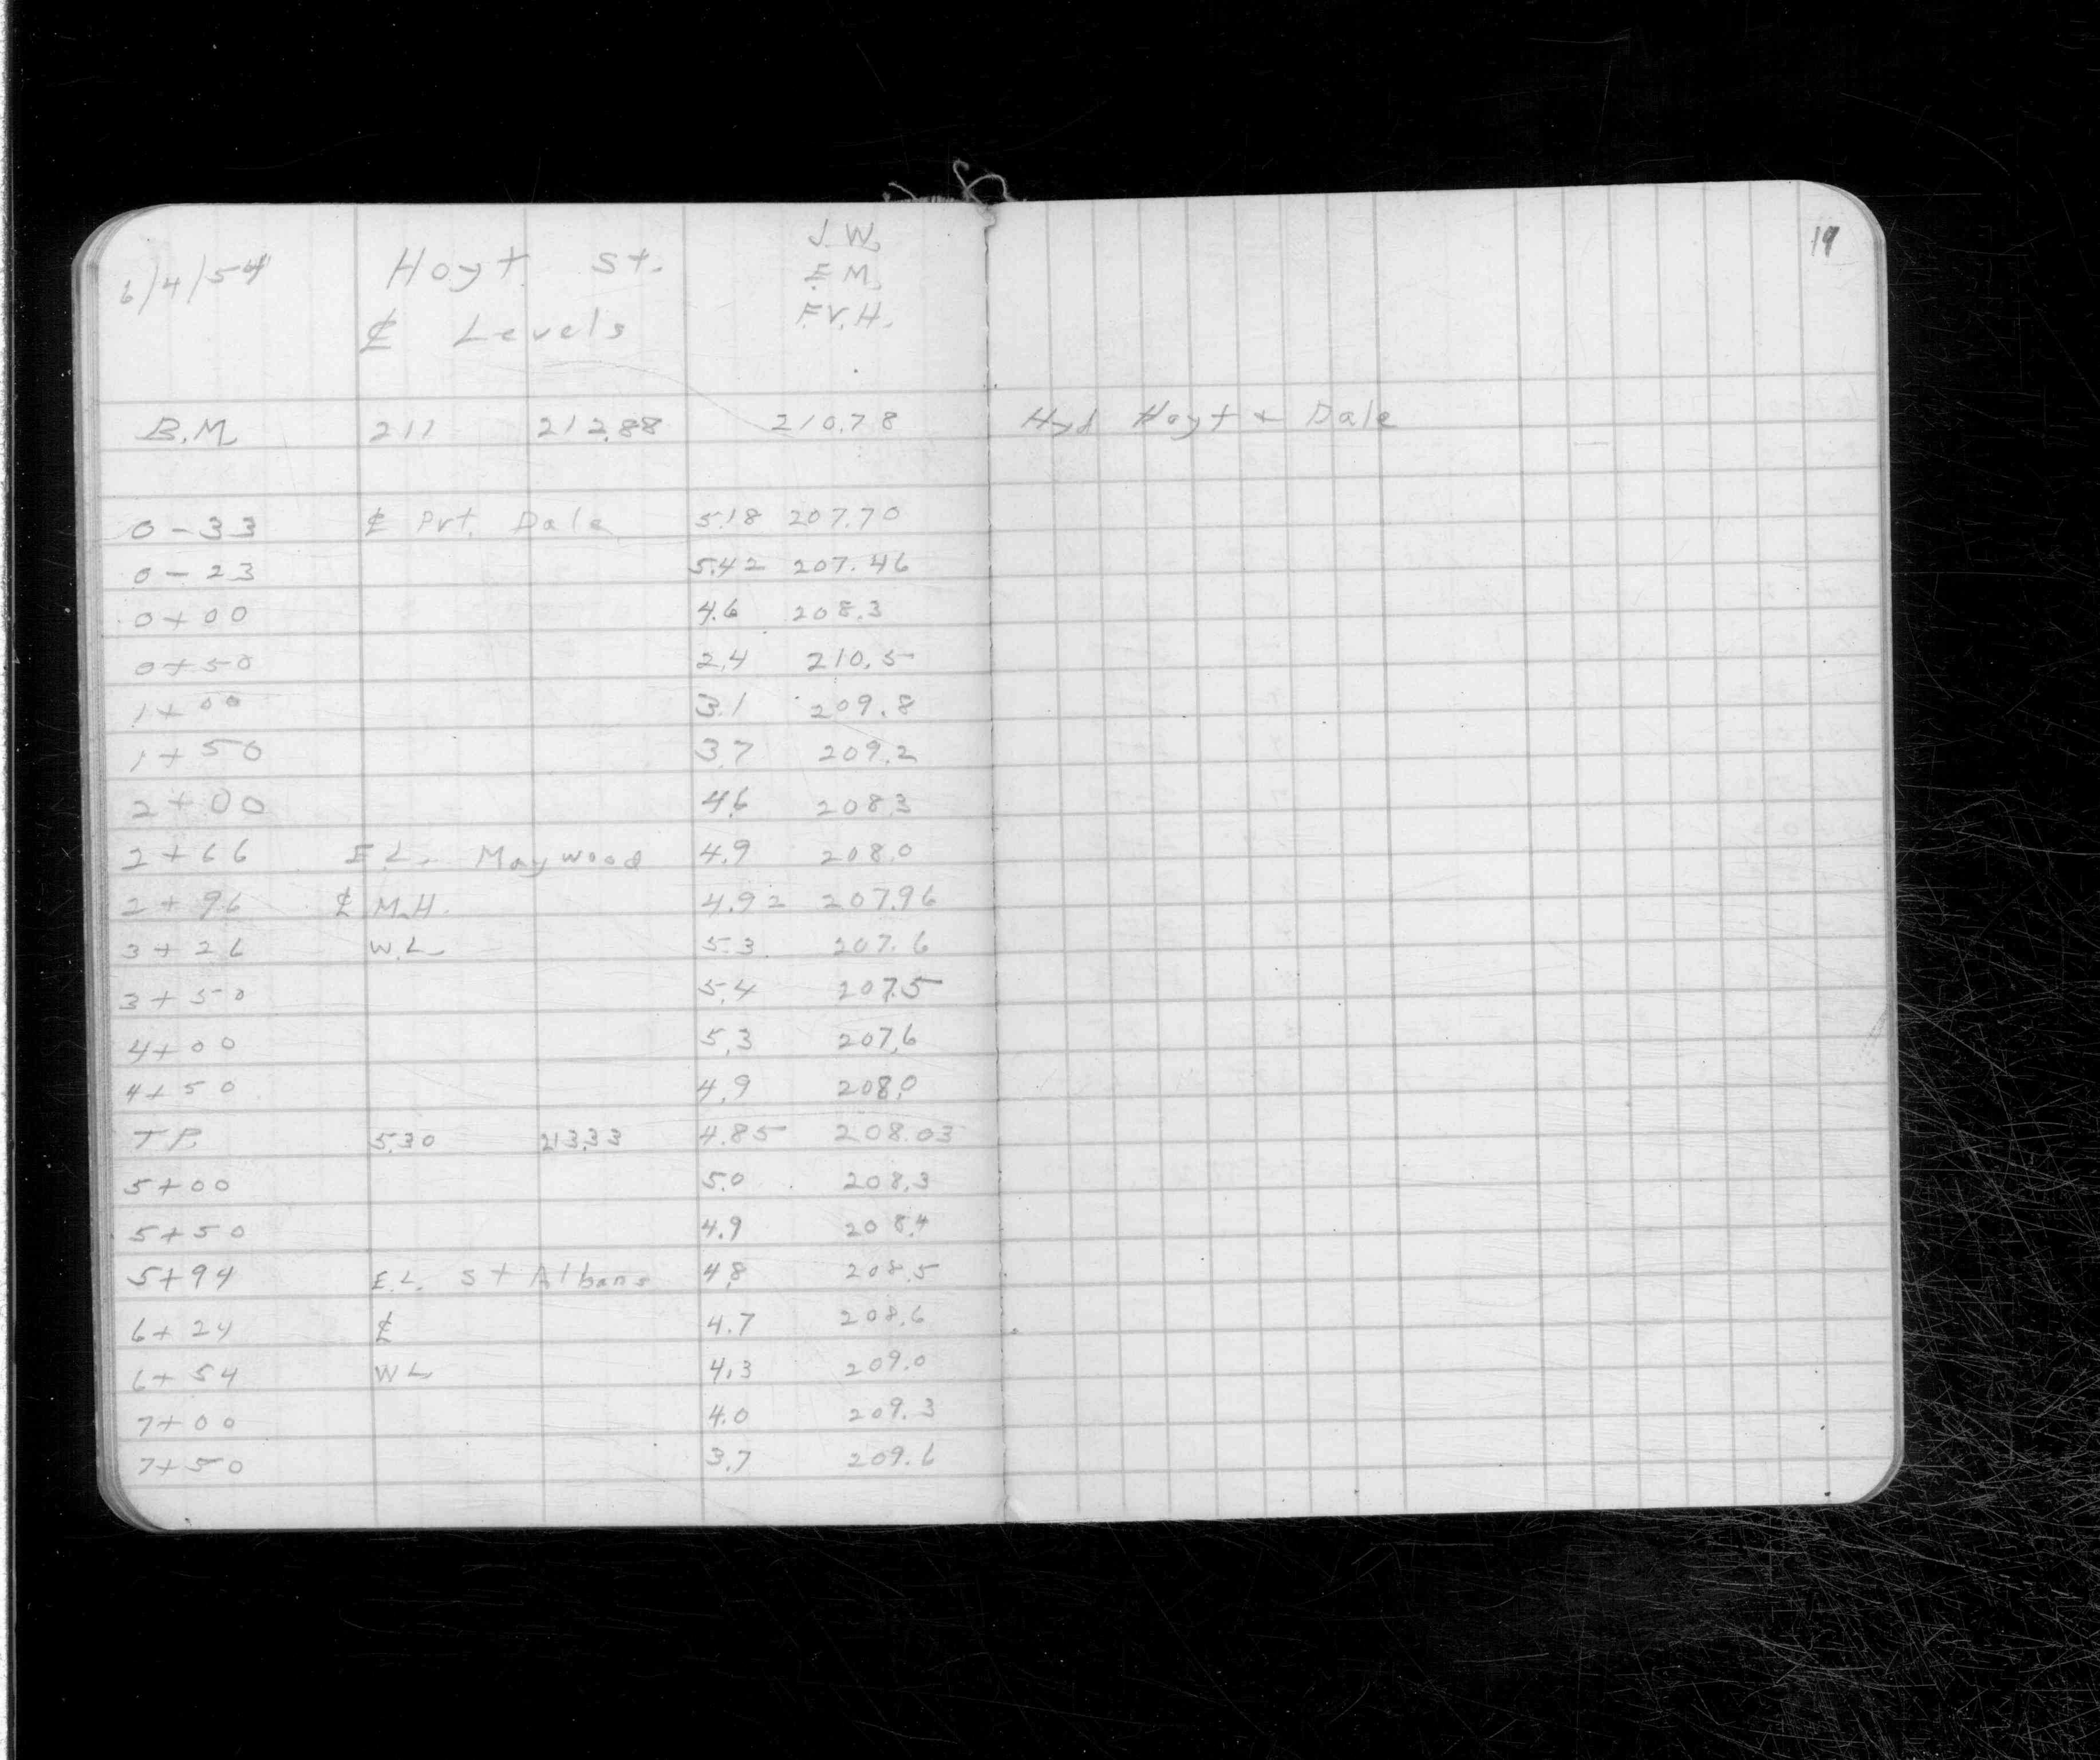 6/4/54 Hoyt St. J.W.
₵ Levels E.M.
F.V.H.
19
B.M. 211 212.88 210.78 Hyd Hoyt + Dale
0-33 ₵ Pvt. Dale 5.18 207.70
0-23 5.42 207.46
0+00 4.6 208.3
0+50 2.4 210.5
1+00 3.1 209.8
1+50 3.7 209.2
2+00 4.6 208.3
2+66 E.L. Maywood 4.9 208.0
2+96 ₵ M.H. 4.92 207.96
3+26 W.L. 5.3 207.6
3+50 5.4 207.5
4+00 5.3 207.6
4+50 4.9 208.0
T.P. 5.30 213.33 4.85 208.03
5+00 5.0 208.3
5+50 4.9 208.4
5+94 E.L. St Albans 4.8 208.5
6+24 ₵ 4.7 208.6
6+54 W.L. 4.3 209.0
7+00 4.0 209.3
7+50 3.7 209.6